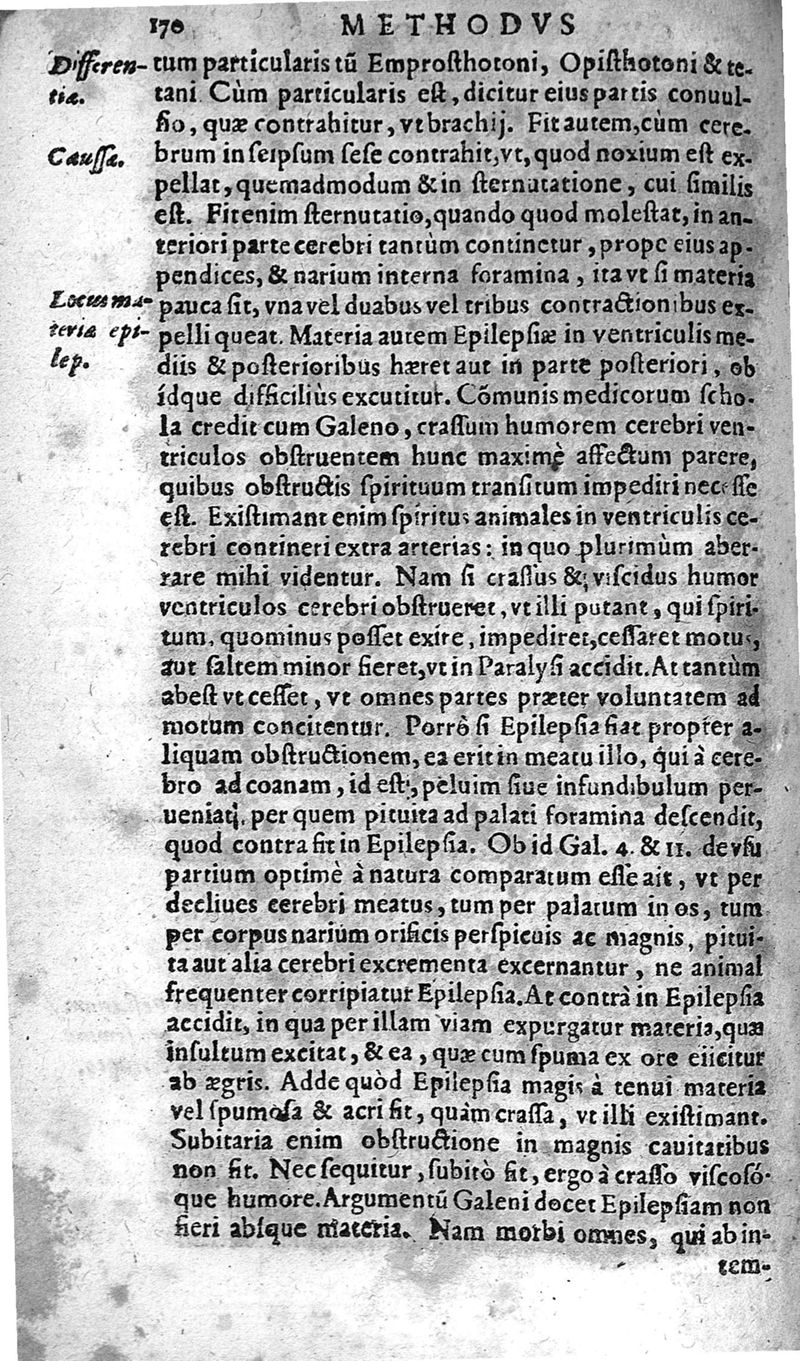 170 METHODVS
Differen-
tiæ.
tum particularis tũ Emprosthotoni, Opisthotoni & te-
tani. Cùm particularis est, dicitur eius partis conuul-
sio, quæ contrahitur, vt brachij. Fit autem, cùm cere-
Caussæ.
brum in seipsum sese contrahit, vt, quod noxium est ex-
pellat, quemadmodum & in sternutatione, cui similis
est. Fit enim sternutatio, quando quod molestat, in an-
teriori parte cerebri tantùm continetur, prope eius ap-
pendices, & narium interna foramina, ita vt si materia
Locus ma-
teriæ epi-
lep.
pauca sit, vna vel duabus vel tribus contractionibus ex-
pelli queat. Materia autem Epilepsiæ in ventriculis me-
diis & posterioribus hæret aut in parte posteriori, ob
ídque difficiliùs excutitur. Cõmunis medicorum scho-
la credit cum Galeno, crassum humorem cerebri ven-
triculos obstruentem hunc maximè affectum parere,
quibus obstructis spirituum transitum impediri necesse
est. Existimant enim spiritus animales in ventriculis ce-
rebri contineri extra arterias: in quo plurimùm aber-
rare mihi videntur. Nam si crassus & viscidus humor
ventriculos cerebri obstrueret, vt illi putant, qui spiri-
tum, quominus posset exire, impediret, cessaret motus,
aut saltem minor fieret, vt in Paralysi accidit. At tantùm
abest vt cesset, vt omnes partes præter voluntatem ad
motum concitentur. Porrò si Epilepsia fiat propter a-
liquam obstructionem, ea erit in meatu illo, qui à cere-
bro ad coanam, id est, peluim siue infundibulum per-
ueniat, per quem pituita ad palati foramina descendit,
quod contra fit in Epilepsia. Ob id Gal. 4. & 11. de vsu
partium optimè à natura comparatum esse ait, vt per
decliues cerebri meatus, tum per palatum in os, tum
per corpus narium orificis perspicuis ac magnis, pitui-
ta aut alia cerebri excrementa excernantur, ne animal
frequenter corripiatur Epilepsia. At contrà in Epilepsia
accidit, in qua per illam viam expurgatur materia, quæ
insultum excitat, & ea, quæ cum spuma ex ore eiicitur
ab ægris. Adde quòd Epilepsia magis à tenui materia
vel spumosa & acri fit, quàm crassa, vt illi existimant.
Subitaria enim obstructione in magnis cauitatibus
non fit. Nec sequitur, subitò fit, ergo à crasso viscosó-
que humore. Argumentũ Galeni docet Epilepsiam non
fieri absque materia. Nam morbi omnes, qui ab in-
tem-